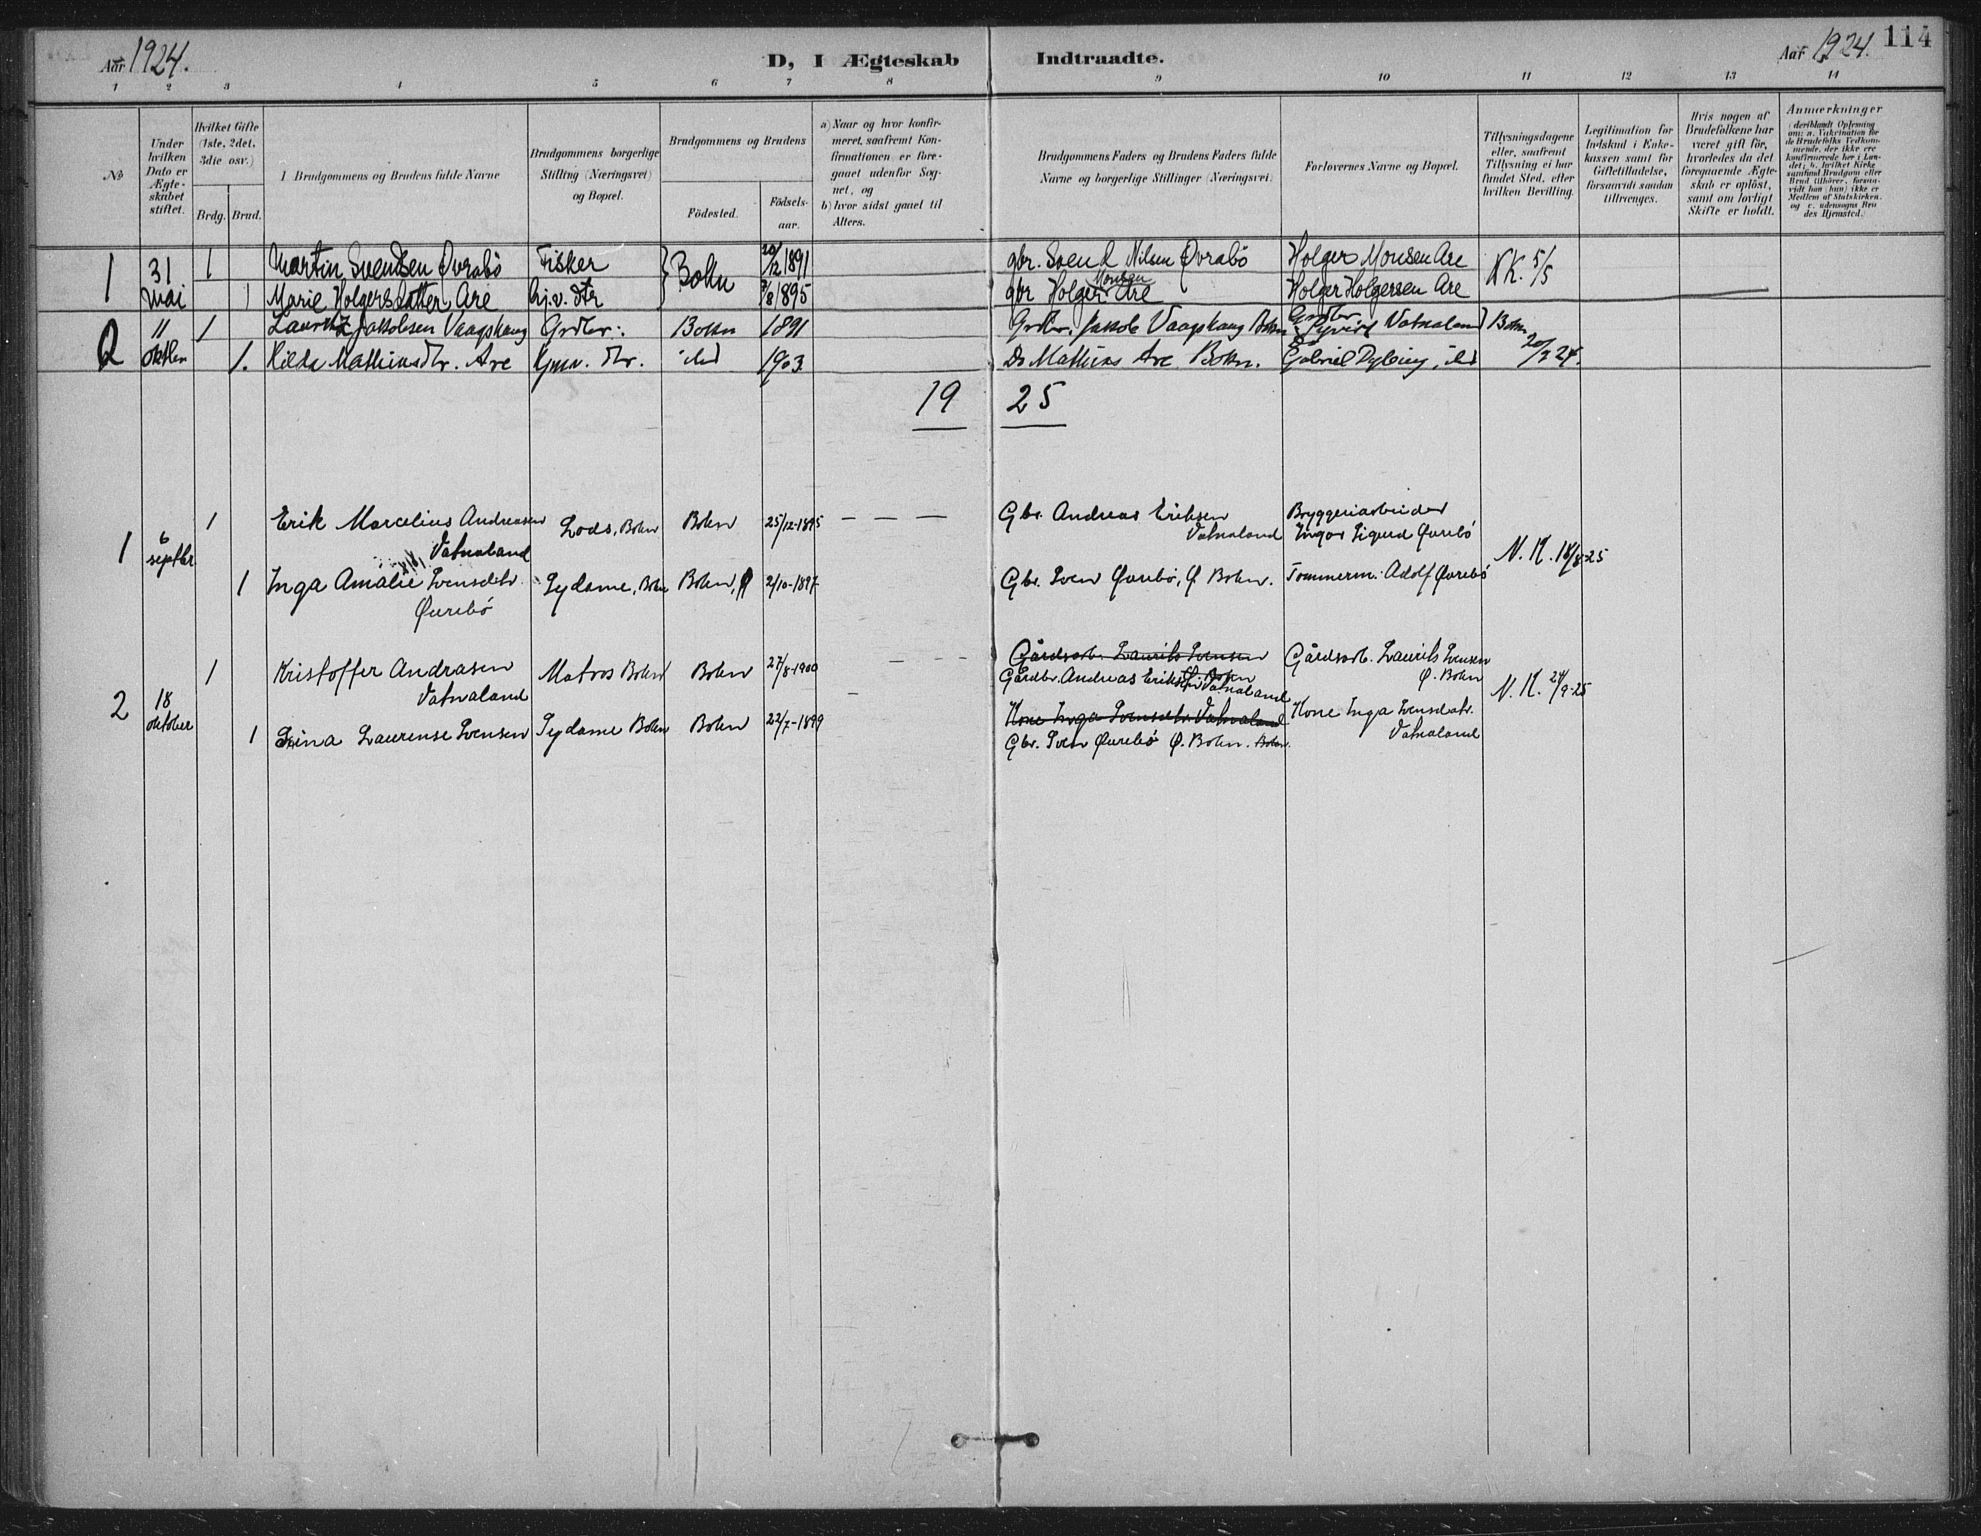 Aar 1924.
D, I Ægteskab Indtraadte.
Aar 1924.
114
1 2 3 4 5 6 7 8 9 10 11 12 13 14
No
Under hvilken Dato er Ægteskabet stiftet.
Hvilket Gifte (1ste, 2det, 3die osv.)
Brdg. Brud.
Brudgommens og Brudens fulde Navne
Brudgommens borgerlige Stilling (Næringsvei) og Bopæl.
Brudgommens og Brudens
Födested.
Födselsaar.
a) Naar og hvor konfirmeret, saafremt Konfirmationen er foregaaet udenfor Sognet, og
b) hvor sidst gaaet til Alters.
Brudgommens Faders og Brudens Faders fulde Navne og borgerlige Stillinger (Næringsvei)
Forlovernes Navne og Bopæl.
Tillysningsdagene eller, saafremt Tillysning ei har fundet Sted, efter hvilken Bevilling.
Legitimation for Indskud i Enkekassen samt for Giftetilladelse, forsaavidt saadan tiltrænges.
Hvis nogen af Brudefolkene har været gift før, hvorledes da det foregaaende Ægteskab er opløst, samt om lovligt Skifte er holdt.
Anmærkninger
1 31 1 Martin Svendsen Øvrabö Fisker Bokn 20/12 1891 gbr. Svend Nilsen Øvrabö Holger Monsen Are NK. 5/5
mai 1 Marie Holgersdotter Are Arj.v. dtr 7/8 1895 gbr Holger Monsen Are Holger Holgersen Are
2 11 1 Lauritz Jakobsen Vaagshaug Grdbr. Bokn 1891 Grdbr. Jakob Vaagshaug Bokn Grdbr. Vatnaland Bokn
oktbr 1. Hilda Mathiasdtr. Are Gmn. dtr. ibd 1903 Do Mathias Are Bokn. Gabriel Dybing, ibd 20/9 24.
19 25
1 6 1 Erik Marcelius Andreasen Lods, Bokn Bokn 25/12-1895 — — — Gbr. Andreas Eriksen Bryggeriarbeider
septbr Vatnaland Vatnaland Ingor Sigurd Øvrebö N. K. 18/8-25
1 Inga Amalie Svensdtr. Sydame, Bokn Bokn, 2/10-1897 Gbr. Sven Øvrebö, Ø. Bokn. Tømmerm. Adolf Øvrebö
Øvrebö
2 18 1 Kristoffer Andrasen Matros Bokn Bokn 27/8-1900 — — — Gårdsarb. Laurits Svensen Gårdsarb. Laurits Svensen
Ø. Bokn Ø. Bokn
oktober Vatnaland Gårdbr. Andreas Eriksen Vatnaland N. K. 24/9-25
Kone Inga Svensdtr. Vatnaland Kone Inga Svensdtr. Vatnaland
1 Laurense Svensen Sydame Bokn Bokn 22/7-1899 Gbr. Sven Øvrebö Ø. Bokn. Bokn.